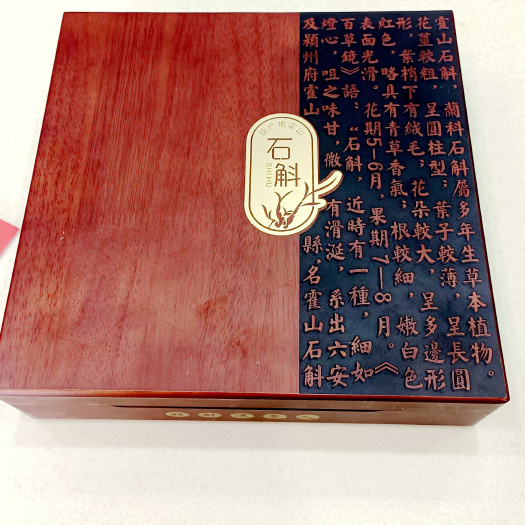 霍山石斛，蘭科石斛屬多年生草本植物。
花薑較粗，呈圓柱型；葉子較薄，呈長圓
形，葉梢下有絨毛；花朵較大，呈多邊形
紅色，略具有青草香氣；根較細，嫩白色
表面光滑。花期5—6月，果期7—8月。《
百草鏡》語：“石斛，近時有一種，細如
燈心，咀之味甘，微有滑涎，系出六安
及潁州府霍山縣，名霍山石斛
石斛
SHI HU